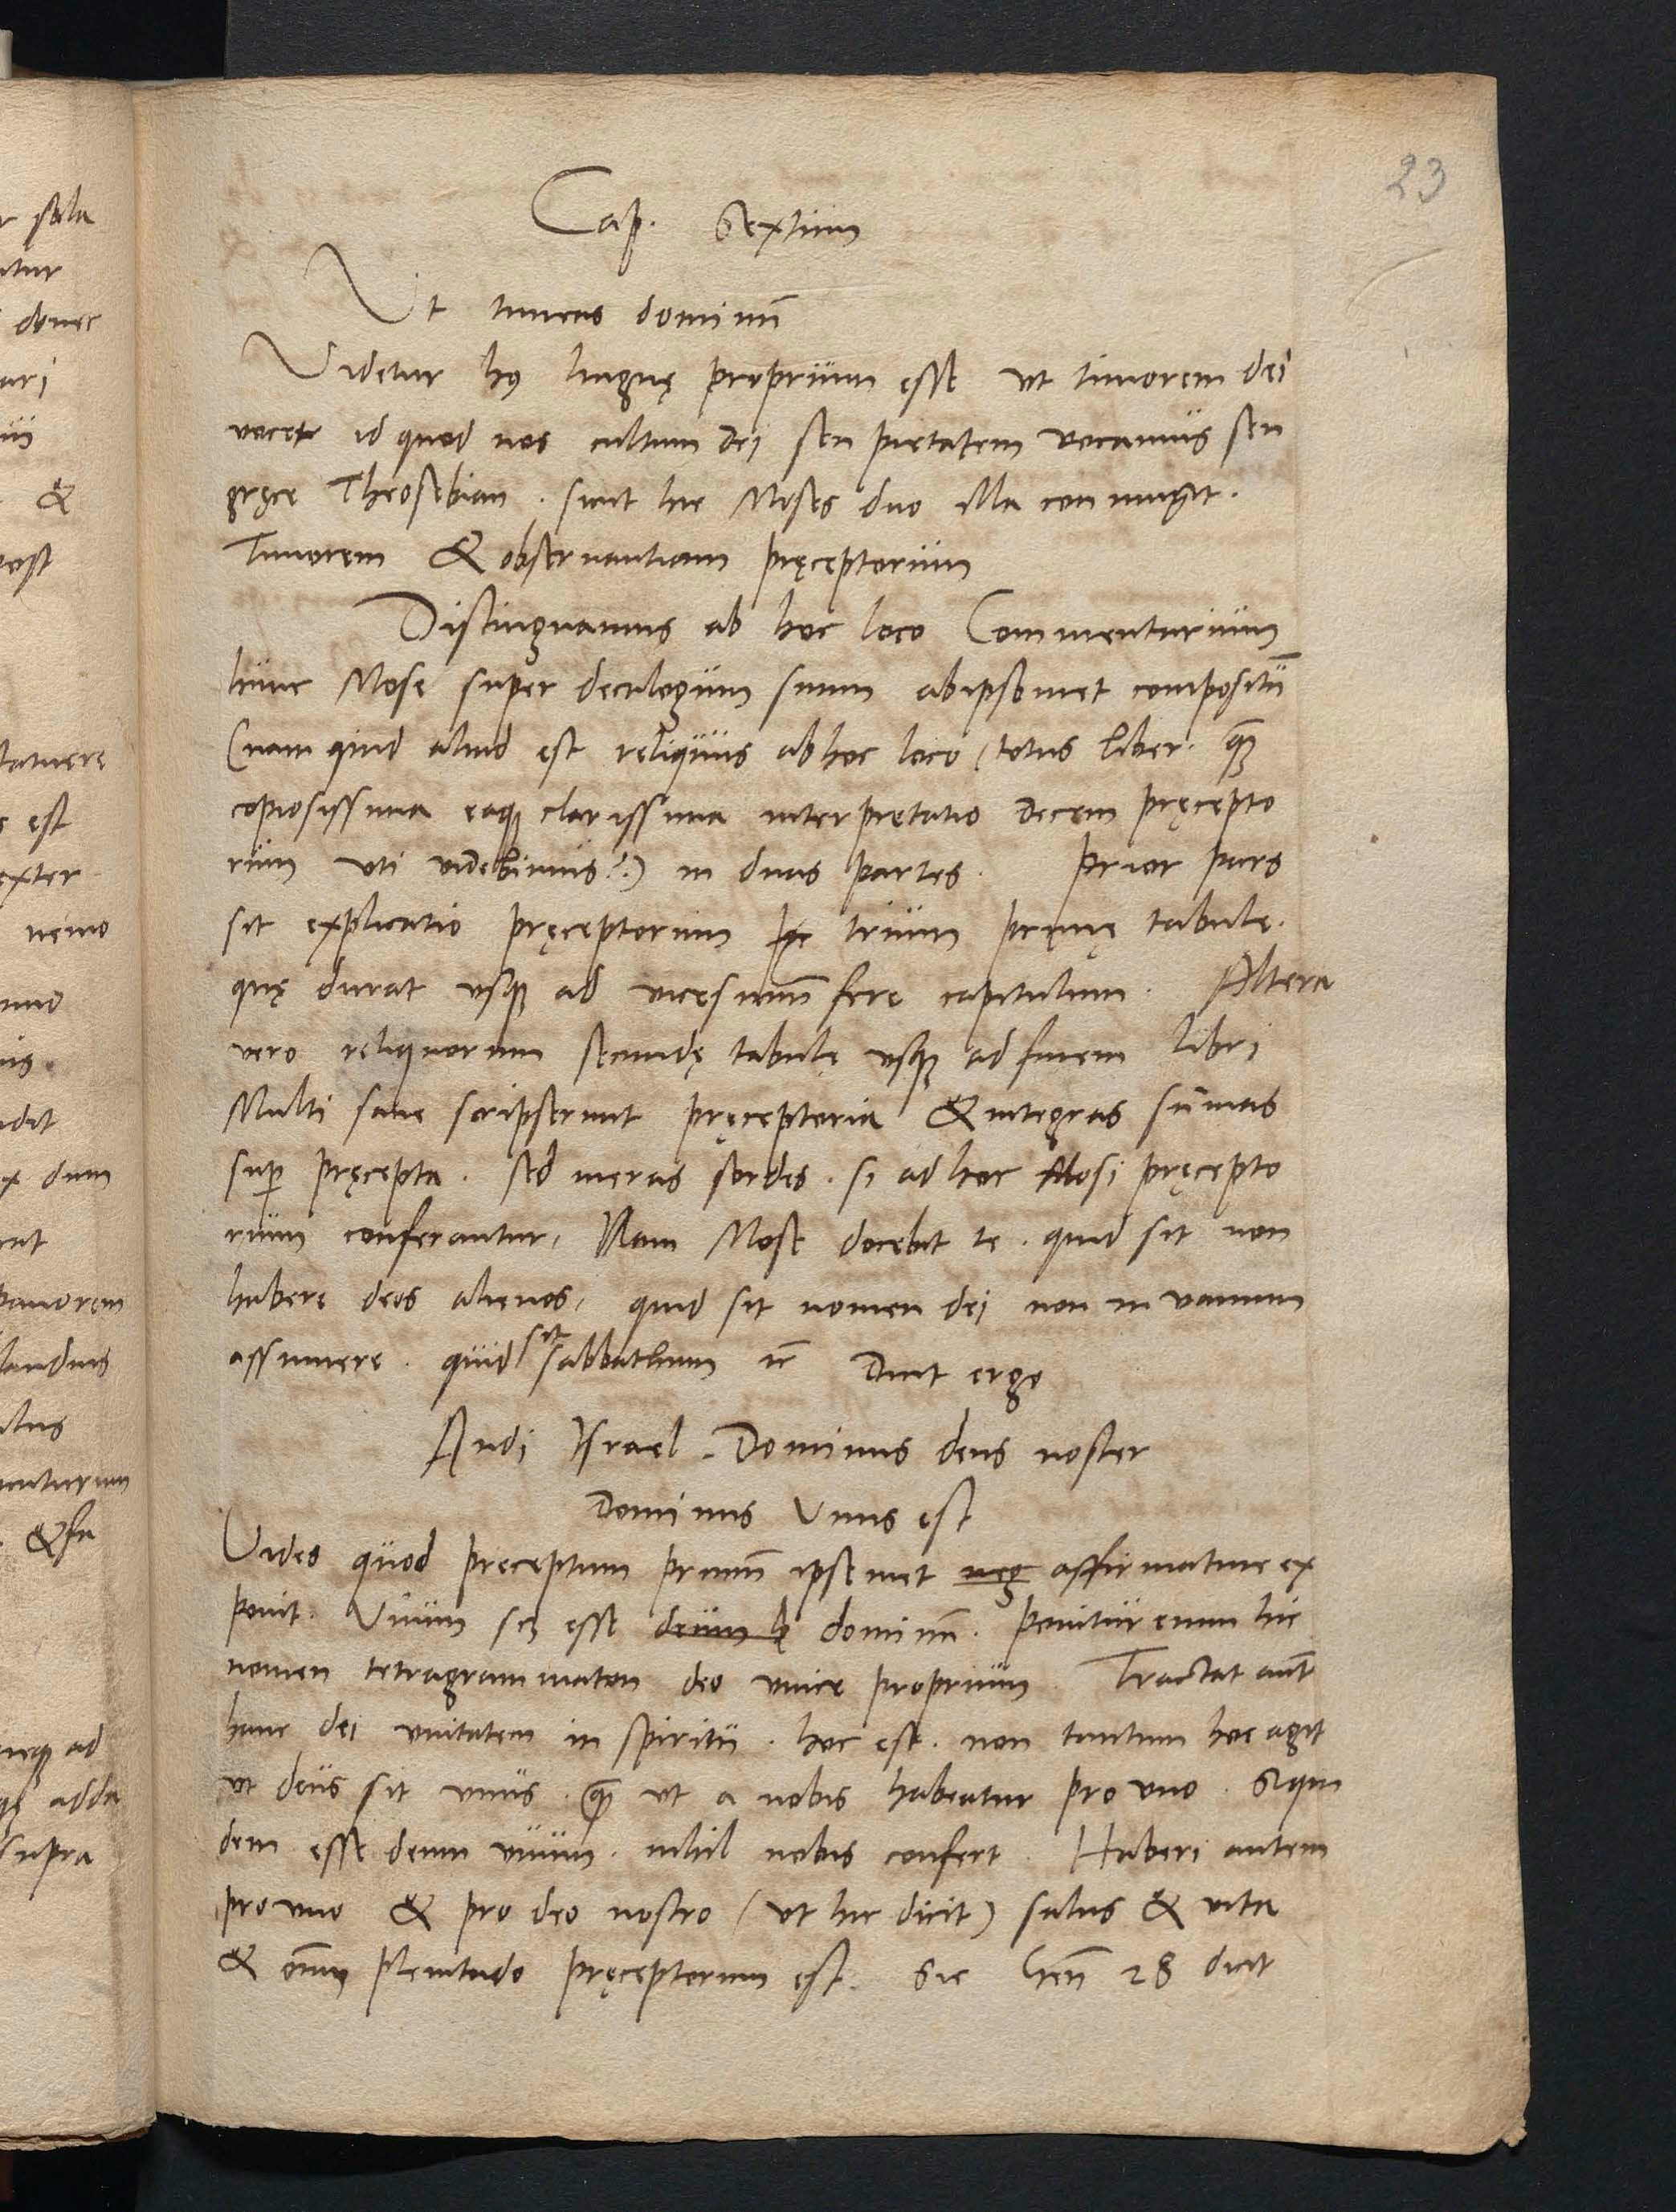 23
Cap. Sextum
Ut timeas dominū
Videtur hui9 linguę proprium esse ut timorem dei
vocet id quod nos cultum dei seu pietatem vocamus seu
gręce Theosebian. sicut hic Moses duo illa coniungit.
Timorem & obseruantiam pręceptorum
Distinguamus ab hoc loco Commentarium
hunc Mose super decalogum suum ab ipsomet compositū
(nam quid aliud est reliquus ab hoc loco (totus liber. quā
copiosissima eaque clarissima interpretatio decem pręcepto
rum uti videbimus?) in duas partes. Prior pars
sit explicatio pręceptorum trium primę tabulę.
quę durat usque ad vicesimū fere capitulum. Altera
vero reliquorum secundę tabulę usque ad finem libri
Multi sane scripserunt pręceptoria & integras sūmas
sup pręcepta. sed meras sordes. si ad hoc Mosi pręcepto
rium conferantur, Nam Mose docebit te. quid sit non
habere deos alienos, quid sit nomen dei non in vanum
assumere. quid sit sabbathum ꝛc Dicit ergo
Audi Israel. Dominus deus noster
Dominus Unus est
Vides quod preceptum primū ipsemet neg affirmatiue ex
ponit. Unum scʒ esse deum dominū. Ponitur enim hic
nomen tetragrammaton deo unice proprium. Tractat aut
hanc dei unitatem in spiritu. hoc est. non tantum hoc agit
ut deus sit unus. quā ut a nobis habeatur pro uno. Siqui
dem esse deum unum. nihil nobis confert. Haberi autem
pro uno & pro deo nostro (ut hic dicit) salus & vita
& omniū plenitudo pręceptorum est. Sic Gen 28 dicit